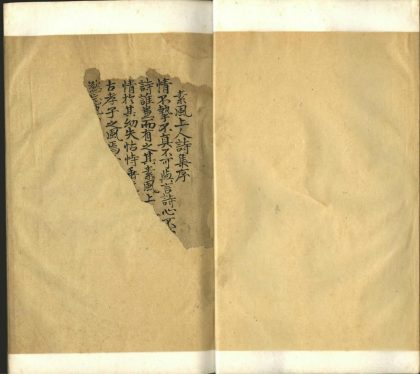 素風上人詩集序
情不摯不真不可與言詩心不
詩誰岂而有之其素風上
情於其幼失怙恃
古孝子之風焉